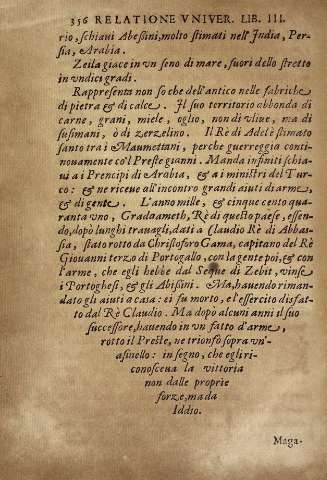 356 RELATIONE VNIVER. LIB. III.
rio, schiaui Abeßini, molto stimati nell'India, Per-
sia, Arabia.
Zeila giace in vn seno di mare, fuori dello stretto
in vndici gradi.
Rappresenta non so che dell'antico nelle fabriche
di pietra & di calce. Il suo territorio abbonda di
carne, grani, miele, oglio, non di vliue, ma di
susimani, ò di zerzelino. Il Rè di Adel è stimato
santo tra i Maumettani, perche guerreggia conti-
nouamente co'l Preste gianni. Manda infiniti schia-
ui a i Prencipi di Arabia, & a i ministri del Tur-
co: & ne riceue all'incontro grandi aiuti di arme,
& di gente. L'anno mille, & cinque cento qua-
ranta vno, Gradaameth, Rè di questo paese, essen-
do, dopò lunghi trauagli, dati a Claudio Rè di Abbas-
sia, stato rotto da Christoforo Gama, capitano del Rè
Giouanni terzo di Portogallo, con la gente poi, & con
l'arme, che egli hebbe dal Seque di Zebit, vinse
i Portoghesi, & gli Abißini. Ma, hauendo riman-
dato gli aiuti a casa: ei fu morto, e l'essercito disfat-
to dal Rè Claudio. Ma dopo alcuni anni il suo
successore, hauendo in vn fatto d'arme,
rotto il Preste, ne trionfò sopra vn'
asinello: in segno, che egli ri-
conosceua la vittoria
non dalle proprie
forze, ma da
Iddio.
Maga-